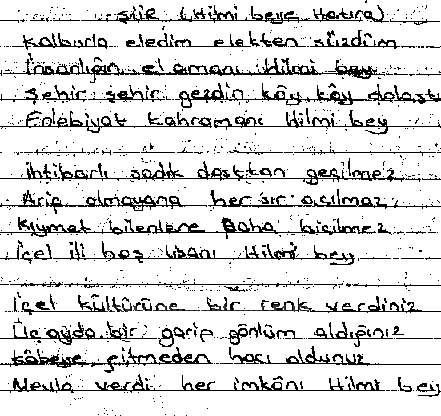 şiir (Hilmi beye Hatıra)
Kalburla eledim elekten süzdüm
İnsanlığın el amanı Hilmi bey
Şehir şehir gezdin köy köy dolaşt
Edebiyat kahramanı Hilmi bey
İhtibarlı sadık dosttan geçilmez
Arip olmayana her sır açılmaz
Kıymet bilenlere paha biçilmez
İçel ili baş lisanı Hilmi bey
İçel kültürüne bir renk verdiniz
Üç ayda bir garip gönlüm aldığınız
Kâbeye gitmeden hacı oldunuz
Mevla verdi her imkânı Hilmi bey